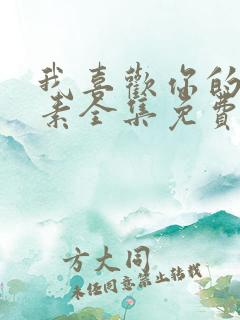 我喜歡你的
素全集免費
方大同
未经同意禁止转载